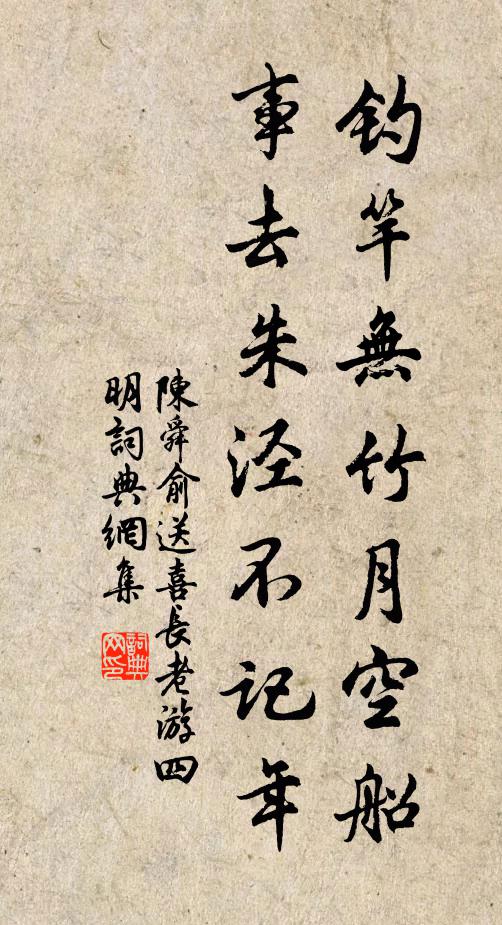 钓竿無竹月空船
事去朱泾不记年
陳舜俞送喜長老游四
明詞典網集
詞典网印